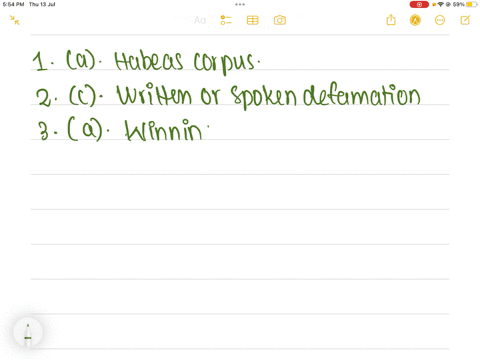 5:54 PM Thu 13 Jul
59%
Aa
1. (a). Habeas corpus.
2. (c). Written or spoken defamation
3. (a). Winnin